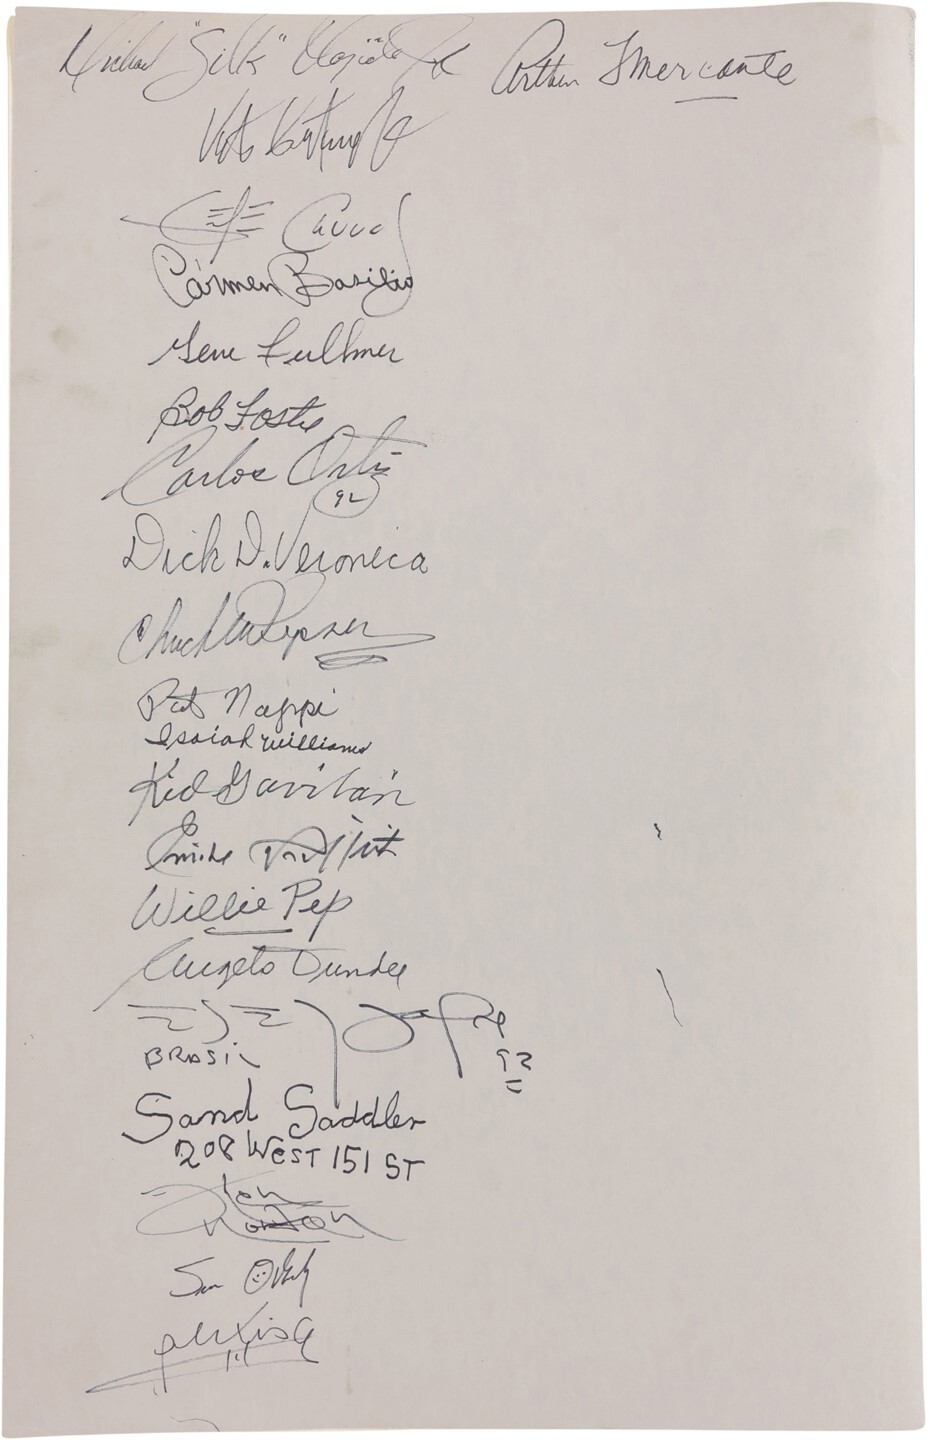 Michael "Silk" Olajide Jr Arthur Mercante
Vito Antuofermo
Carmen Basilio
Gene Fullmer
Bob Foster
Carlos Ortiz
92
Dick D. Veronica
Chuck Wepner
Pat Nappi
Isaiah Williams
Kid Gavilán
Emile Griffith
Willie Pep
Angelo Dundee
Eder Jofre
BRASIL 92
Sand Saddler
208 WEST 151 ST
Ken
Norton
Alexis A